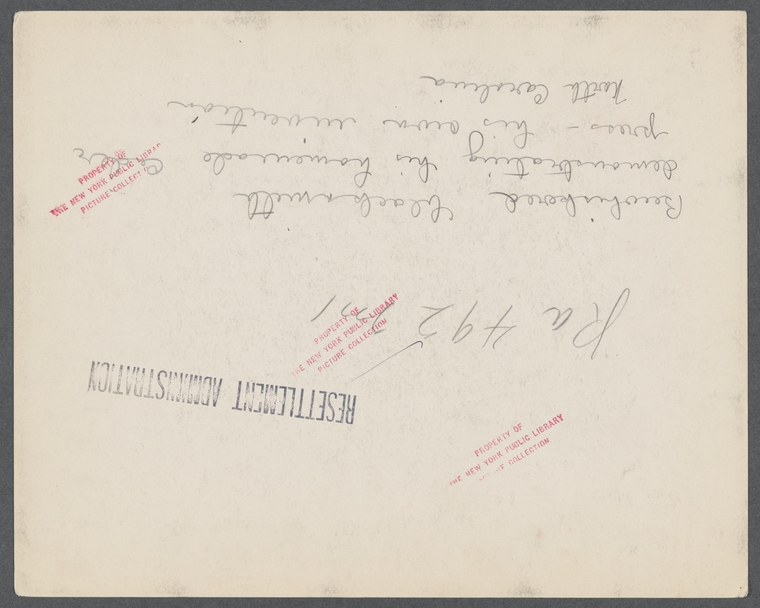 RESETTLEMENT ADMINISTRATION
Ra 492
Bewhiskered blacksmith
demonstrating his homemade cider
press – his own invention
North Carolina
PROPERTY OF
THE NEW YORK PUBLIC LIBRARY
PICTURE COLLECTION
PROPERTY OF
THE NEW YORK PUBLIC LIBRARY
PICTURE COLLECTION
PROPERTY OF
THE NEW YORK PUBLIC LIBRARY
COLLECTION